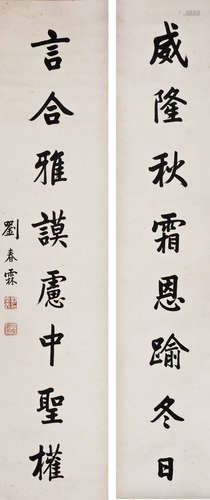 威隆秋霜恩踰冬日
言合雅謨慮中聖權
劉春霖